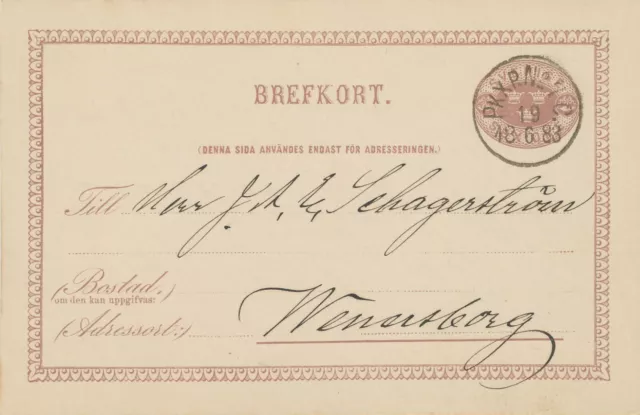 BREFKORT.
PKXP.N
19
18 6 83
(DENNA SIDA ANVÄNDES ENDAST FÖR ADRESSERINGEN.)
Till Herr J. A. E. Schagerström
(Bostad:)
om den kan uppgifvas:
(Adressort:) Wenersborg